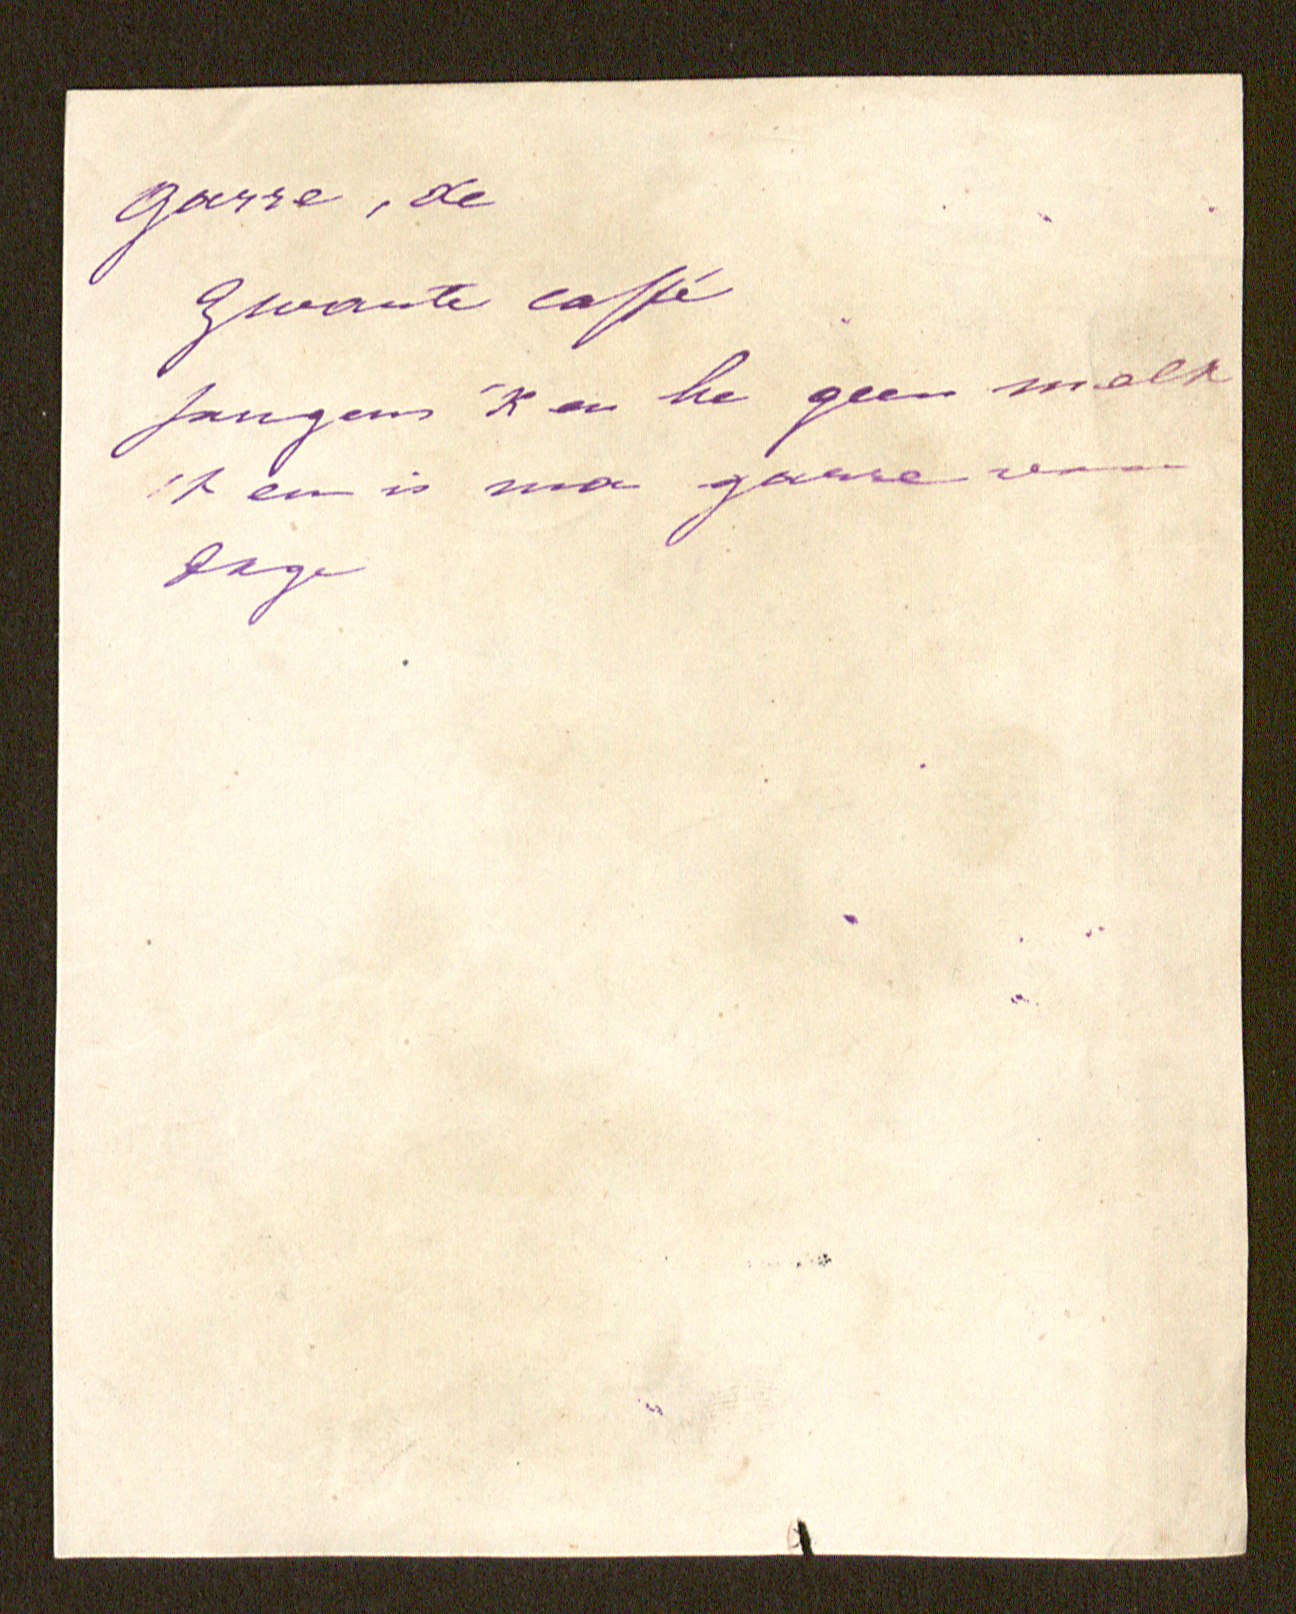 garre, de
Zwarte caffé
jongens 'k en he geen melk
't en is ma garre van
dage